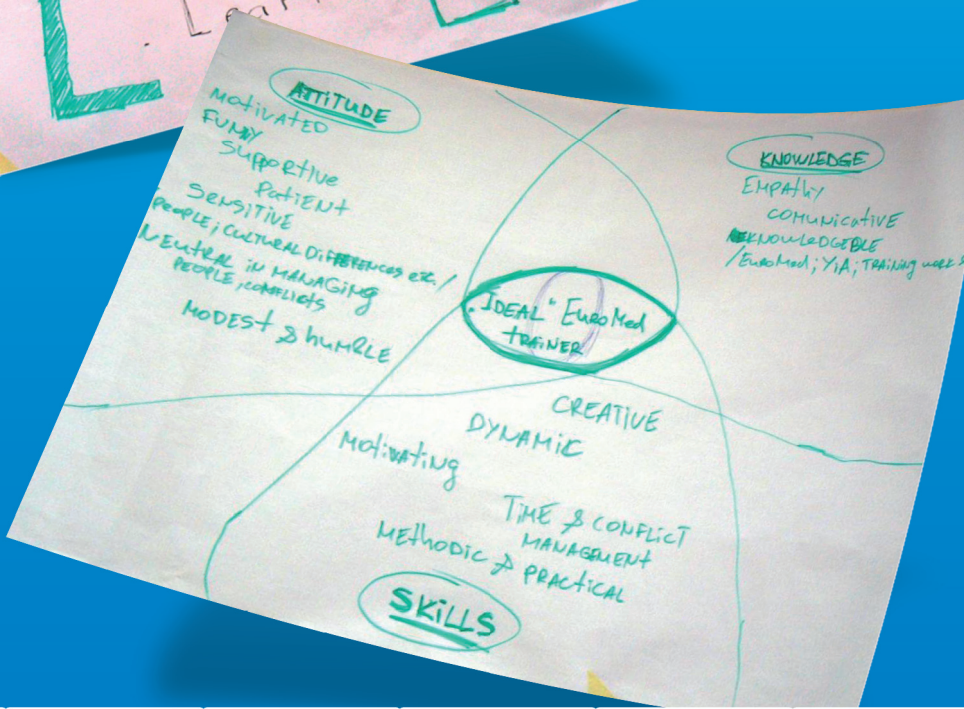 Lear
ATTITUDE
MOTIVATED
FUNNY
SUPPORTIVE
PATIENT
SENSITIVE
PEOPLE; CULTURAL DIFFERENCES etc. /
NEUTRAL IN MANAGING
PEOPLE, CONFLICTS
MODEST & HUMBLE
KNOWLEDGE
EMPATHY
COMUNICATIVE
KNOWLEDGEBLE
/EuroMed; YiA; TRAINING work
"IDEAL" EuroMed
TRAINER
CREATIVE
DYNAMIC
Motivating
TIME & CONFLICT
MANAGEMENT
METHODIC & PRACTICAL
SKILLS